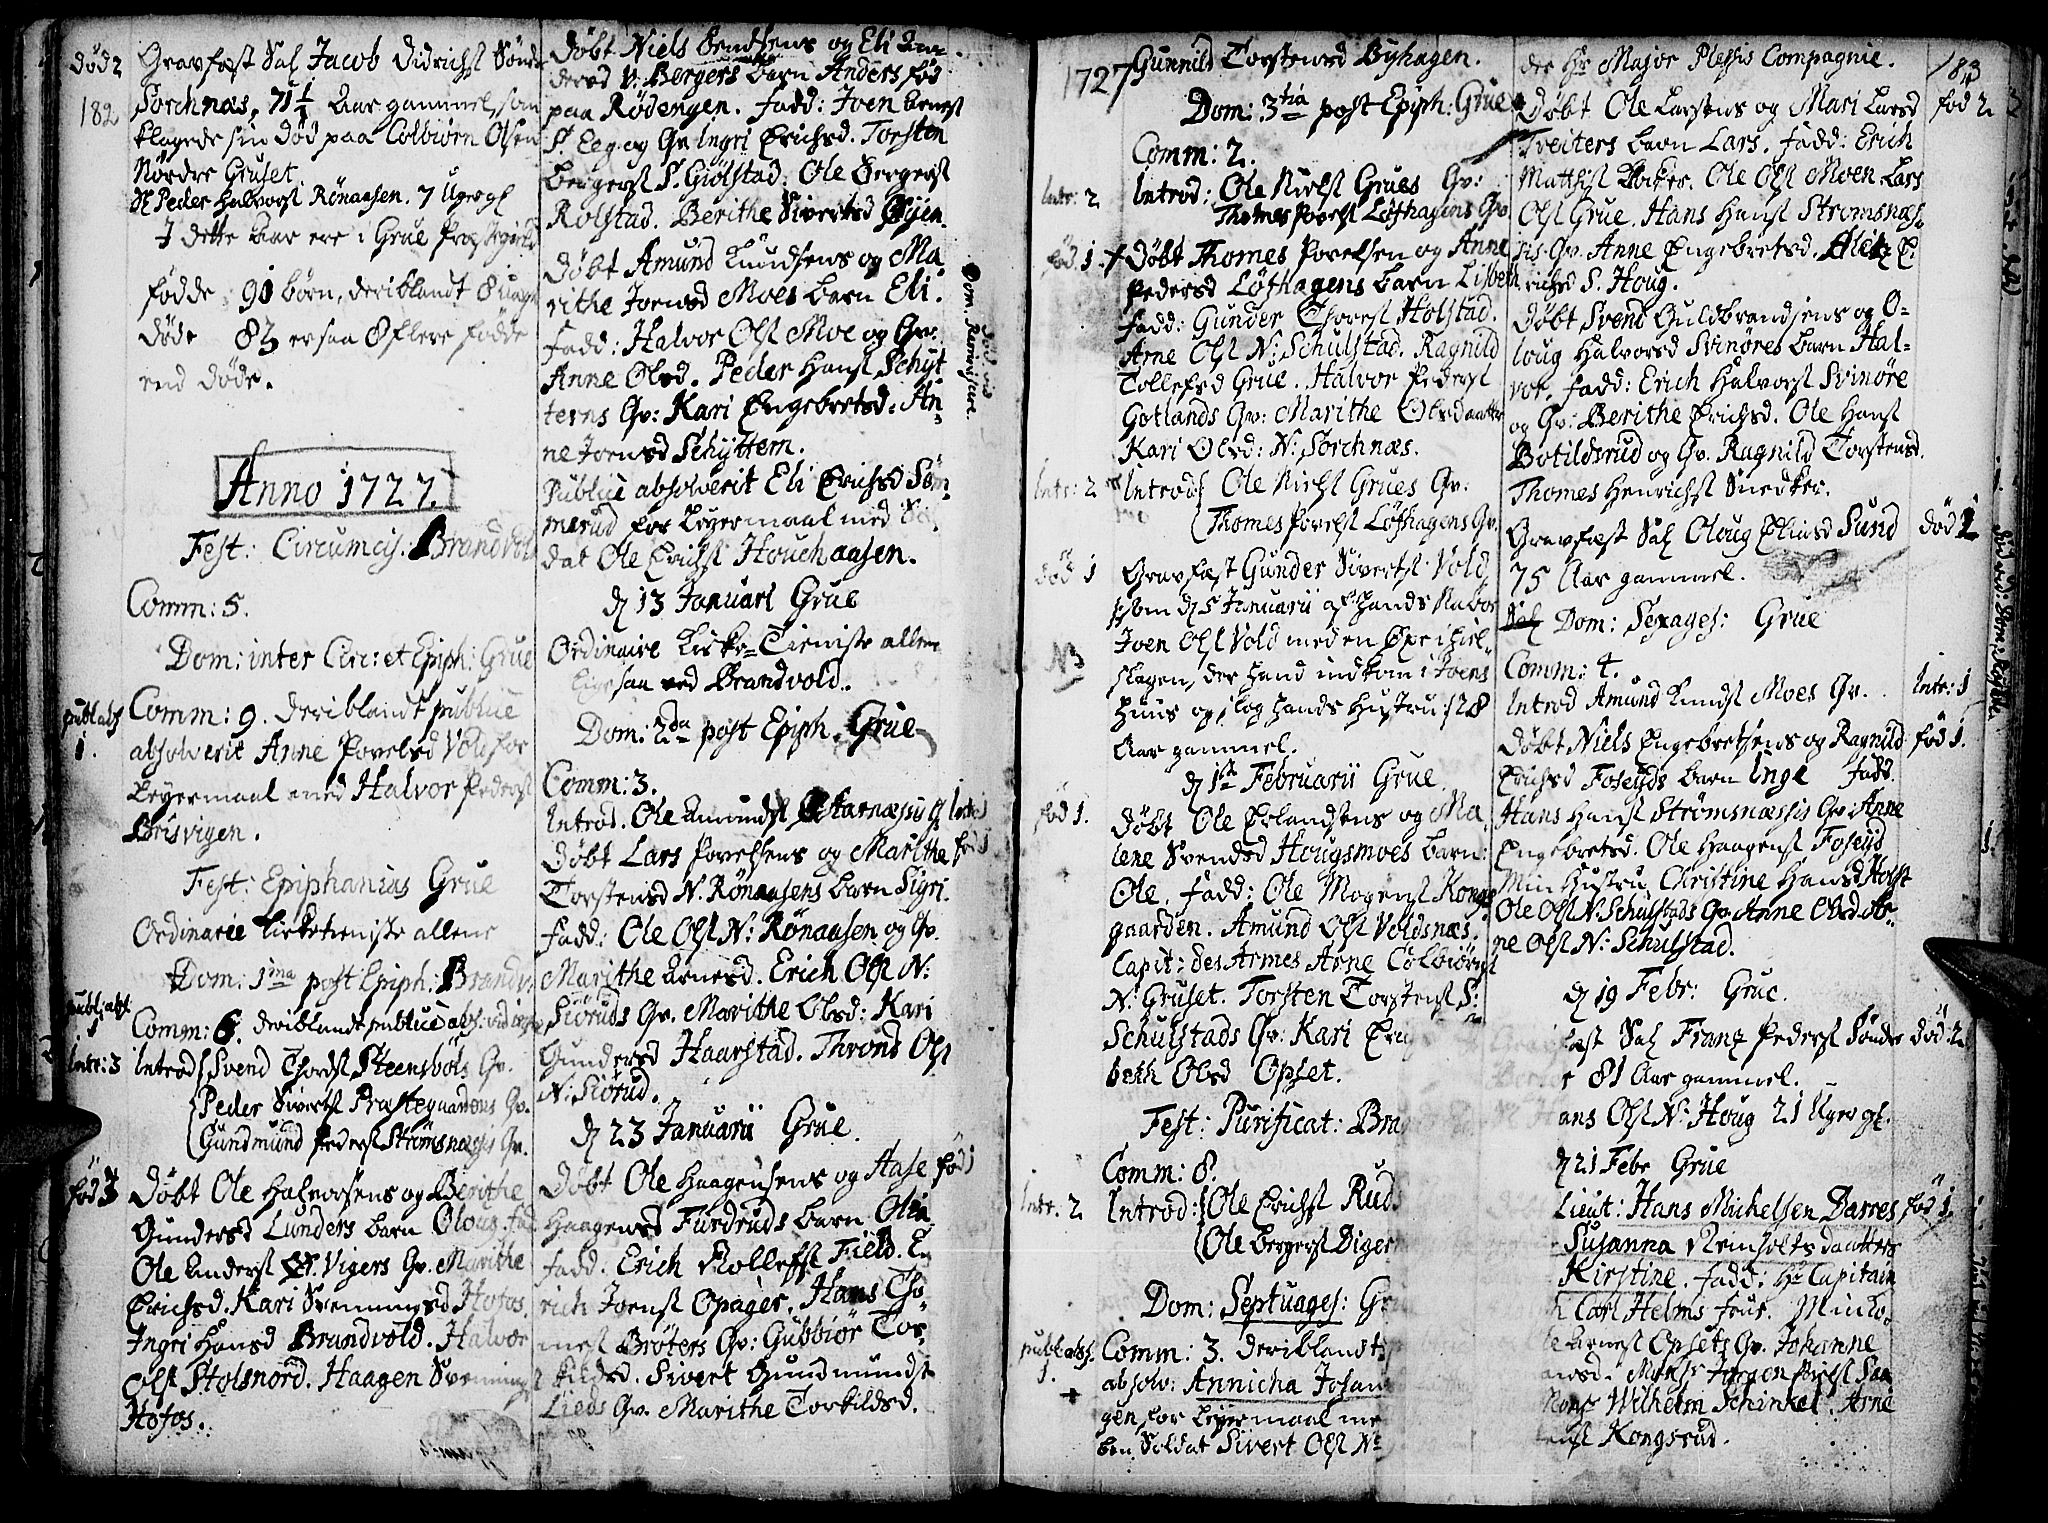 død 2
182
Gravfæst Sal Jacob Didrichs Sønde
Sorchnæs, 71½ Aar gammel, som
klagede sin død paa Colbiørn Olsen
Nordre Gruset
Peder Halvors Rønaasen. 7 Uger gl
I dette Aar ere i Grue Præstegield
fødde 91 børn, deriblandt 8
døde 83 ersaa 8 flere fødde
end døde.
Anno 1727.
Fest: Circumcis: Brandvold
Comm: 5.
Dom: inter Circ: et Epiph: Grue
publ abs
1.
Comm: 9. deriblandt publice
absolverit Anne Povelsd Vold for
Leyermaal med Halvor Peders
Brisvigen.
Fest: Epiphanias Grue
Ordinarie Kirketieniste allene
Dom: 1ma post Epiph. Brandv:
publ: abs
1
Comm: 6. deriblandt publice abs:
Intr: 3
Introd Svend Thords Steensbøls Qv.
Peder Siverts Præstegaardens Qv.
Gundmund Peders Strømsnæsis Qv.
fød 3
Døbt Ole Halvorsens og Berithe
Gundersd Lunders barn Oloug. fad
Ole Anders Vigers Qv. Marithe
Erichsd. Kari Svenningsd Hofos.
Ingri Hansd Brandvold. Halvor
Ols Stolsnord. Haagen Svennings
Hofos.
Døbt Niels Bendsens og Eli An-
dersd V. Bergers barn Anders fød
paa Rødengen. fadd: Joen Arnes
S. Eeg og Qv. Ingri Erichsd. Torsten
Bergers S. Giølstad. Ole Bergers
Rolstad. Berithe Sivertsd
Døbt Amund Knudsens og Ma
rithe Joensd Moes barn Eli.
fadd: Halvor Ols Moe og Qv:
Anne Olsd. Peder Hans Schyt
terns Qv: Kari Engebretsd: An
ne Joensd Schyttern.
Publice absolverit Eli Erichsd Søm
merud for Leyermaal med Sol
dat Ole Erichs Houchaasen.
d 13 Januari Grue
Ordinaire Kirke=Tieniste allene
ligesaa ved Brandvold.
Dom: 2da post Epiph. Grue
Comm: 3.
Introd. Ole Amunds Skarnæsis Q Intr: 1
Døbt Lars Povelsens og Marithe fød 1
Torstensd N. Rønaasens barn Sigri.
fadd: Ole Ols N: Rønaasen og Qv.
Marithe Arnesd. Erich Ols N:
Siøruds Qv. Marithe Olsd: Kari
Gundersd Haarstad. Thrond Ols
N: Siørud.
d 23 Januarii Grue.
Døbt Ole Haagensens og Aase fød 1
Haagensd Furdruds barn Olia
fadd. Erich Rolleffs Field. E
rich Joens Opager. Hans Tho
mes Brøters Qv: Gubbiør Tor
kildsd. Sivert Gundmunds
Lieds Qv. Marithe Torkildsd.
Dom. Reminiscere.
1727
Gunnild Torstensd Byhagen.
Dom: 3tia post Epiph: Grue
Comm: 2.
Intr: 2
Introd: Ole Niels Grues Qv:
Thomes Povels Løfhagens Qv
fød 1.
Døbt Thomes Povelsen og Anne
Pedersd Løfhagens barn Lisbeth
fadd: Gunder Thores Holstad.
Arne Ols N: Schulstad. Ragnild
Tollefsd Grue. Halvor Peders
Gotlands Qv: Marithe Olsdaatter
Kari Olsd: N: Sorchnæs.
Intr: 2
Introd Ole Niels Grues Qv:
Thomes Povels Løfhagens Qv.
død 1
Gravfæst Gunder Siverts Vold
som d 5 Januarii af hands Nabo
N3
Joen Ols Vold med en Øxe ihiel
slagen, der hand indkom i Joens
Huus og slog hands Hustru: 28
Aar gammel.
d 1st Februarii Grue
fød 1.
Døbt Ole Erlandsens og Ma
lene Svendsd Hougsmoes barn:
Ole. fadd: Ole Mogens Kongs
gaarden. Amund Ols Voldsnæs.
Capit: des Armes Arne Colbiørns
N: Gruset. Torsten Torstens S:
Schulstads Qv: Kari
beth Olsd Opset.
Fest: Purificat: Bra
Comm: 8.
Intr. 2
Introd: Ole Erichs Ruds
Ole Bergers Diger
Dom: Septuages: Gr
publ: abs.
1.
Comm: 3. deriblandt
absolv: Annicha Johan
gen, for Leyermaal me
ben Soldat Sivert Ols N:
183
der Hr Major Plessis Compagnie.
Døbt Ole Larsens og Mari Larsd fød 2.
Treiters barn Lars. fadd: Erich
Matthis Ole Ols Moen. Lars
Ols Grue. Hans Hans Strømsnæs
sis Qv. Anne Engebretsd. E
richsd S. Houg.
Døbt Svend Guldbrandsens og O-
loug Halvorsd Svinøres barn Hal-
vor. fadd: Erich Halvors Svinøre
og Qv: Berithe Erichsd. Ole Hans
Botildsrud og Qv. Ragnild Torstensd.
Thomes Henrichs Snedker.
Gravfæst Sal Oloug Eliasd Sund død 1
75 Aar gammel.
Dom: Sexages: Grue
Comm: 4.
Introd Amund Knuds Moes Qv. Intr: 1
Døbt Niels Engebretsens og Ragnild fød 1.
Erichsd Foseyds barn Inge fadd.
Hans Hans Strømsnæssis Qv: Anne
Engebretsd. Ole Haagens Foseyd
Min Hustru Christine Hansd Holst
Ole Ols N. Schulstads Qv Anne Olsd Ar
ne Ols N: Schulstad.
d 19 Febr: Grue.
fæst Sal Franz Peders Sønder død: 2.
r 81 Aar gammel.
ans Ols N: Houg 21 Uger gl.
d 21 Febr Grue
Lieut: Hans Michelsen Darres fød 1.
Susanna Remholts daatters
Kirstine. fadd: Hr Capitain
Carl Helms frue. Min
Arnes Opsets Qv. Johanne
Jørgen Povels
Mons Wilhelm Schinkel. Arne
Kongsrud.